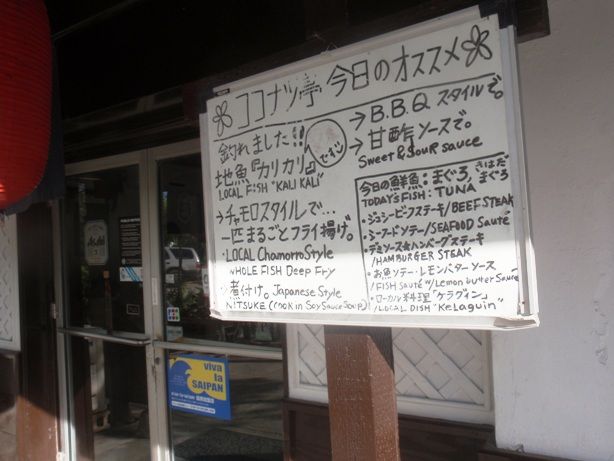 ココナツ亭 今日のオススメ
釣れました!!
地魚『カリカリ』
LOCAL FISH "KALI KALI"
→チャモロスタイルで...
一匹まるごとフライ揚げ。
・LOCAL Chamorro Style
WHOLE FISH Deep Fry
煮付け。Japanese Style
NITSUKE (COOK in Soy Sauce Soup)
→B.B.Q スタイルで。
→甘酢ソースで。
Sweet & Sour sauce
今日の鮮魚:まぐろ きはだまぐろ
TODAY'S FISH: TUNA
・ジュシービーフステーキ/BEEF STEAK
・シーフードソテー/SEAFOOD Sauté
・デミソース☆ハンバーグステーキ
/HAMBURGER STEAK
・お魚ソテー・レモンバターソース
/FISH sauté w/Lemon butter Sauce
・ローカル料理「ケラグイン」
/LOCAL DISH "KeLaguin"
Asahi
viva
la
SAIPAN